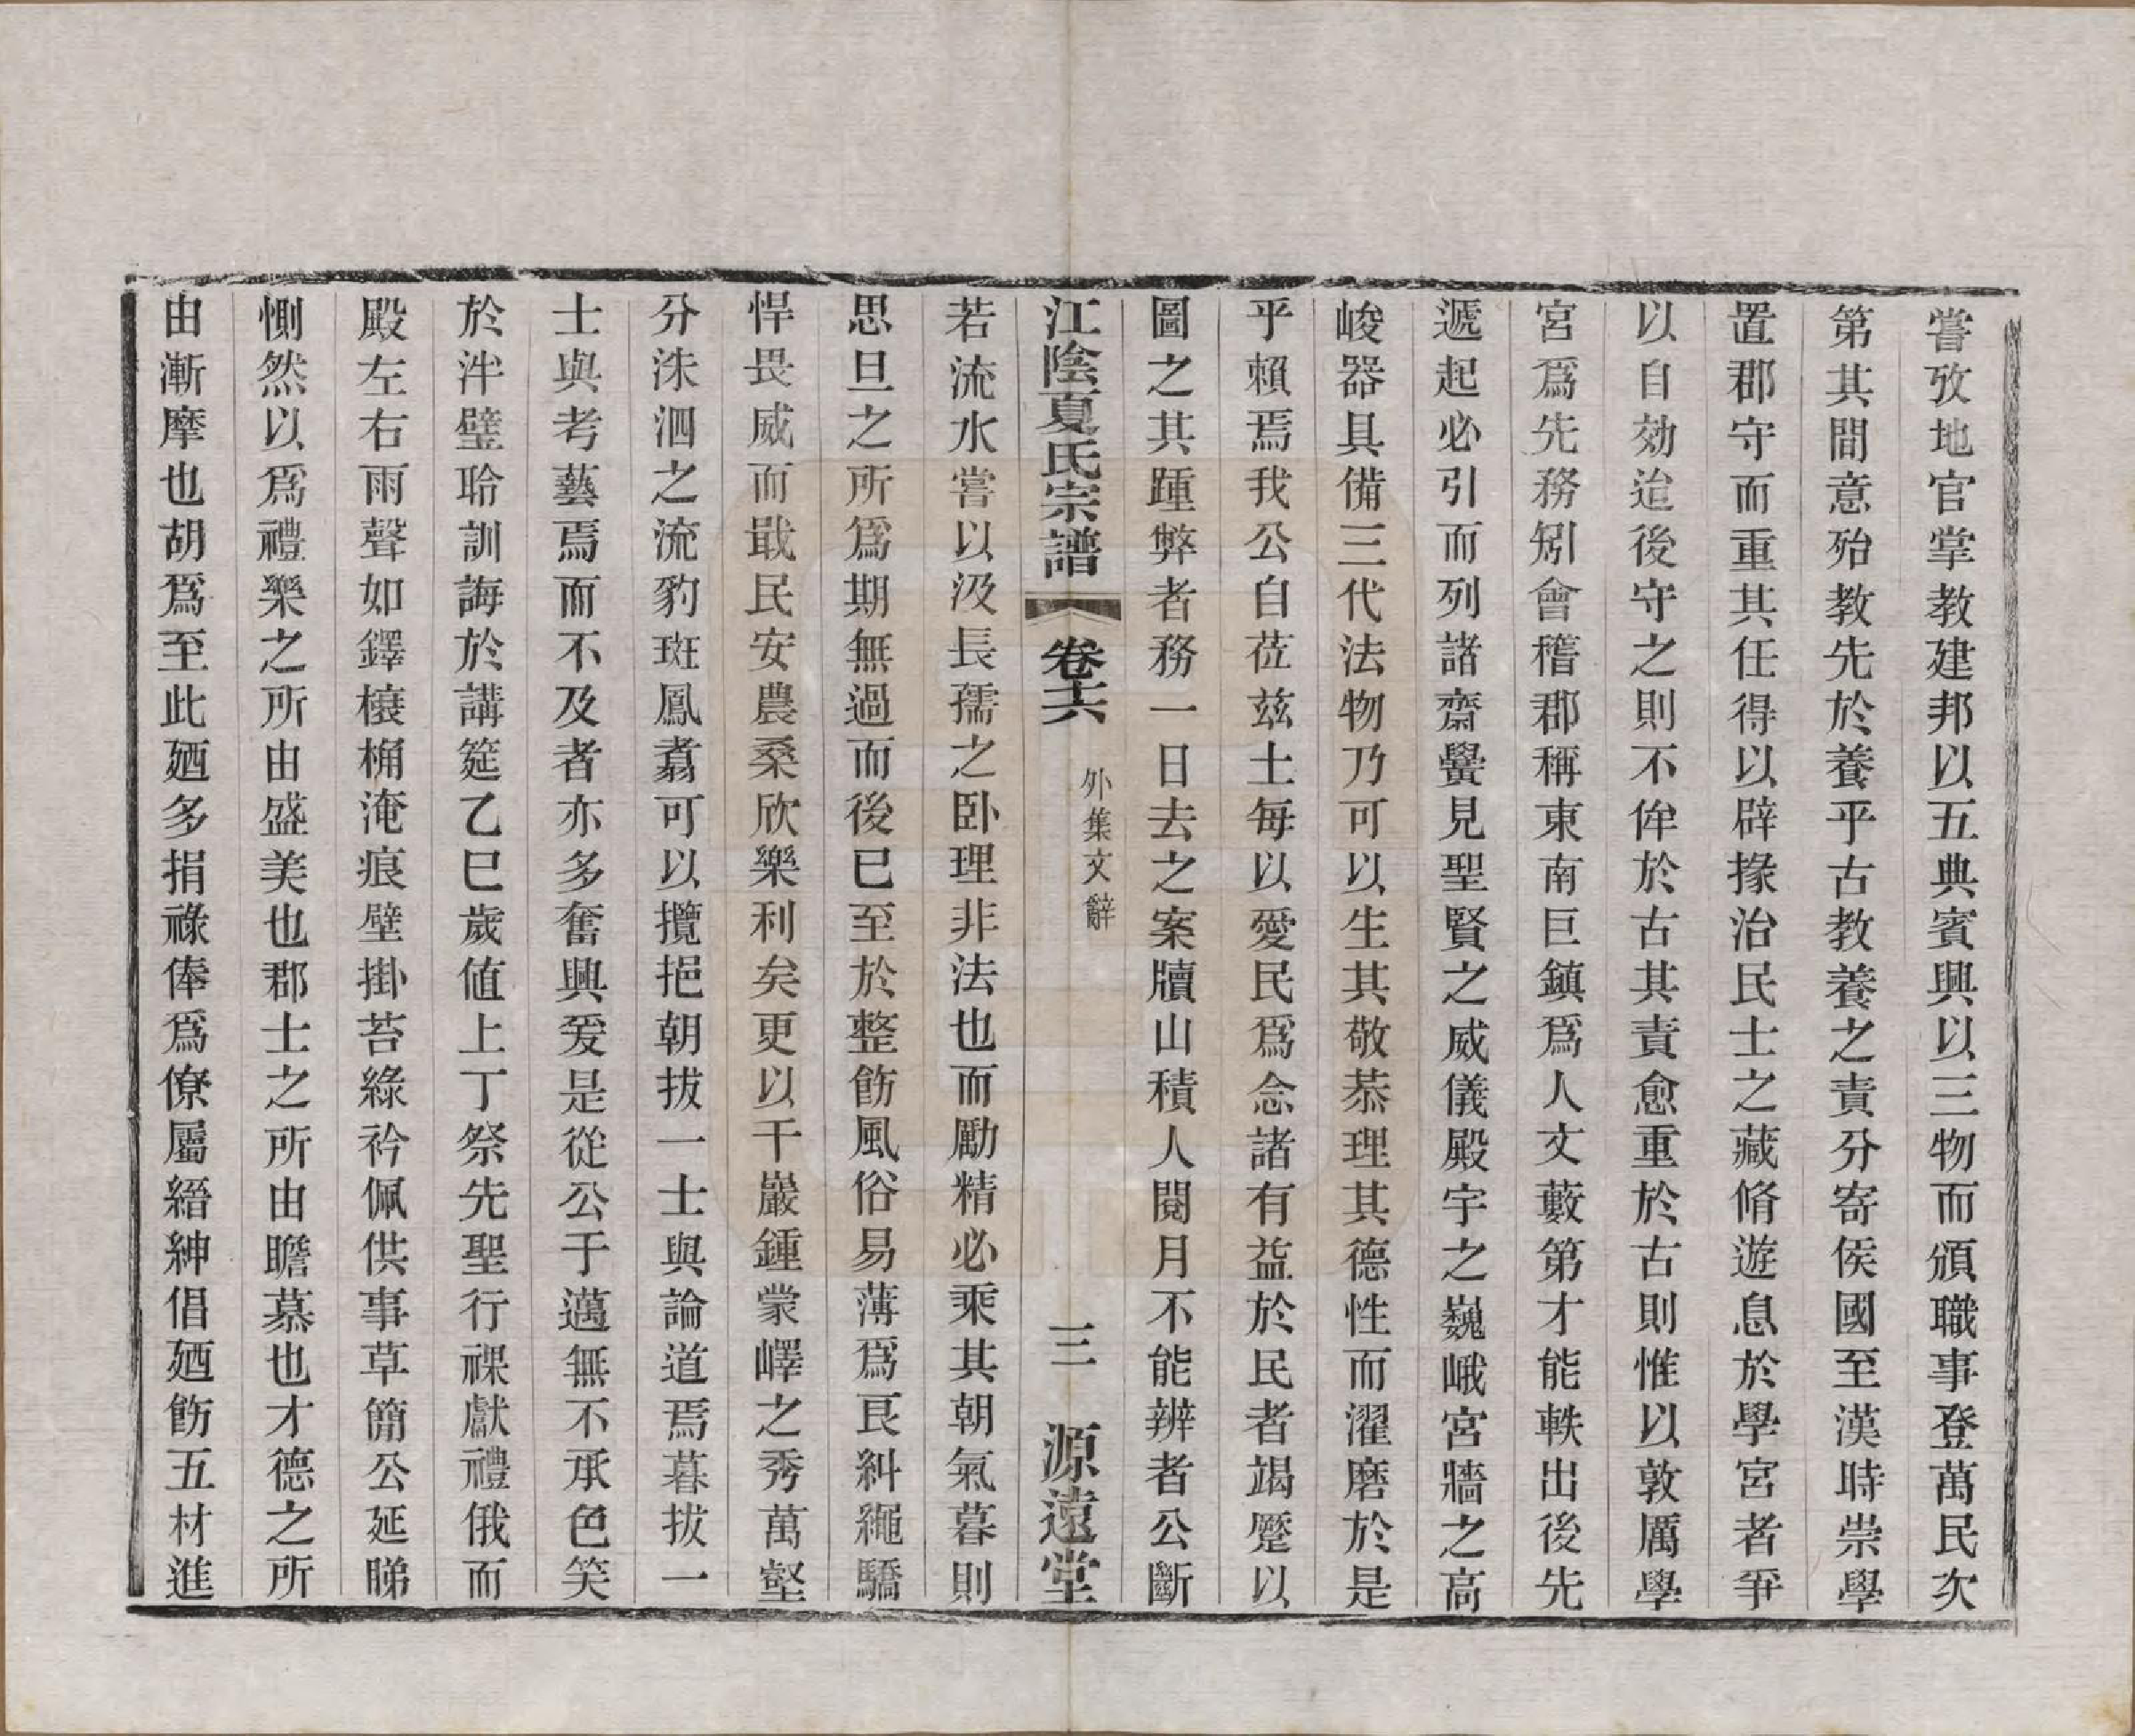 嘗攷地官掌教建邦以五典賓興以三物而頒職事登萬民次
第其間意殆教先於養乎古教養之責分寄侯國至漢時崇學
置郡守而重其任得以辟掾治民士之藏脩遊息於學宮者爭
以自効迨後守之則不侔於古其責愈重於古則惟以敦厲學
宮爲先務矧會稽郡稱東南巨鎮爲人文藪第才能軼出後先
遞起必引而列諸齋黌見聖賢之威儀殿宇之巍峨宮牆之高
峻器具備三代法物乃可以生其敬恭理其德性而濯磨於是
乎賴焉我公自莅玆土每以愛民爲念諸有益於民者竭蹷以
圖之其踵弊者務一日去之案牘山積人閱月不能辨者公斷
江陰夏氏宗譜 卷十六 外集文辭 三 源遠堂
若流水嘗以汲長孺之臥理非法也而勵精必乘其朝氣暮則
思旦之所爲期無過而後已至於整飭風俗易薄爲艮糾繩驕
悍畏威而戢民安農桑欣樂利矣更以千巖鍾蒙嶧之秀萬壑
分洙泗之流豹斑鳳翥可以攬挹朝拔一士與論道焉暮拔一
士與考藝焉而不及者亦多奮興爰是從公于邁無不承色笑
於泮璧聆訓誨於講筵乙巳歲値上丁祭先聖行祼獻禮俄而
殿左右雨聲如鐸榱桷淹痕壁掛苔綠衿佩供事草簡公延睇
惻然以爲禮樂之所由盛美也郡士之所由瞻慕也才德之所
由漸摩也胡爲至此廼多捐祿俸爲僚屬縉紳倡廼飭五材進